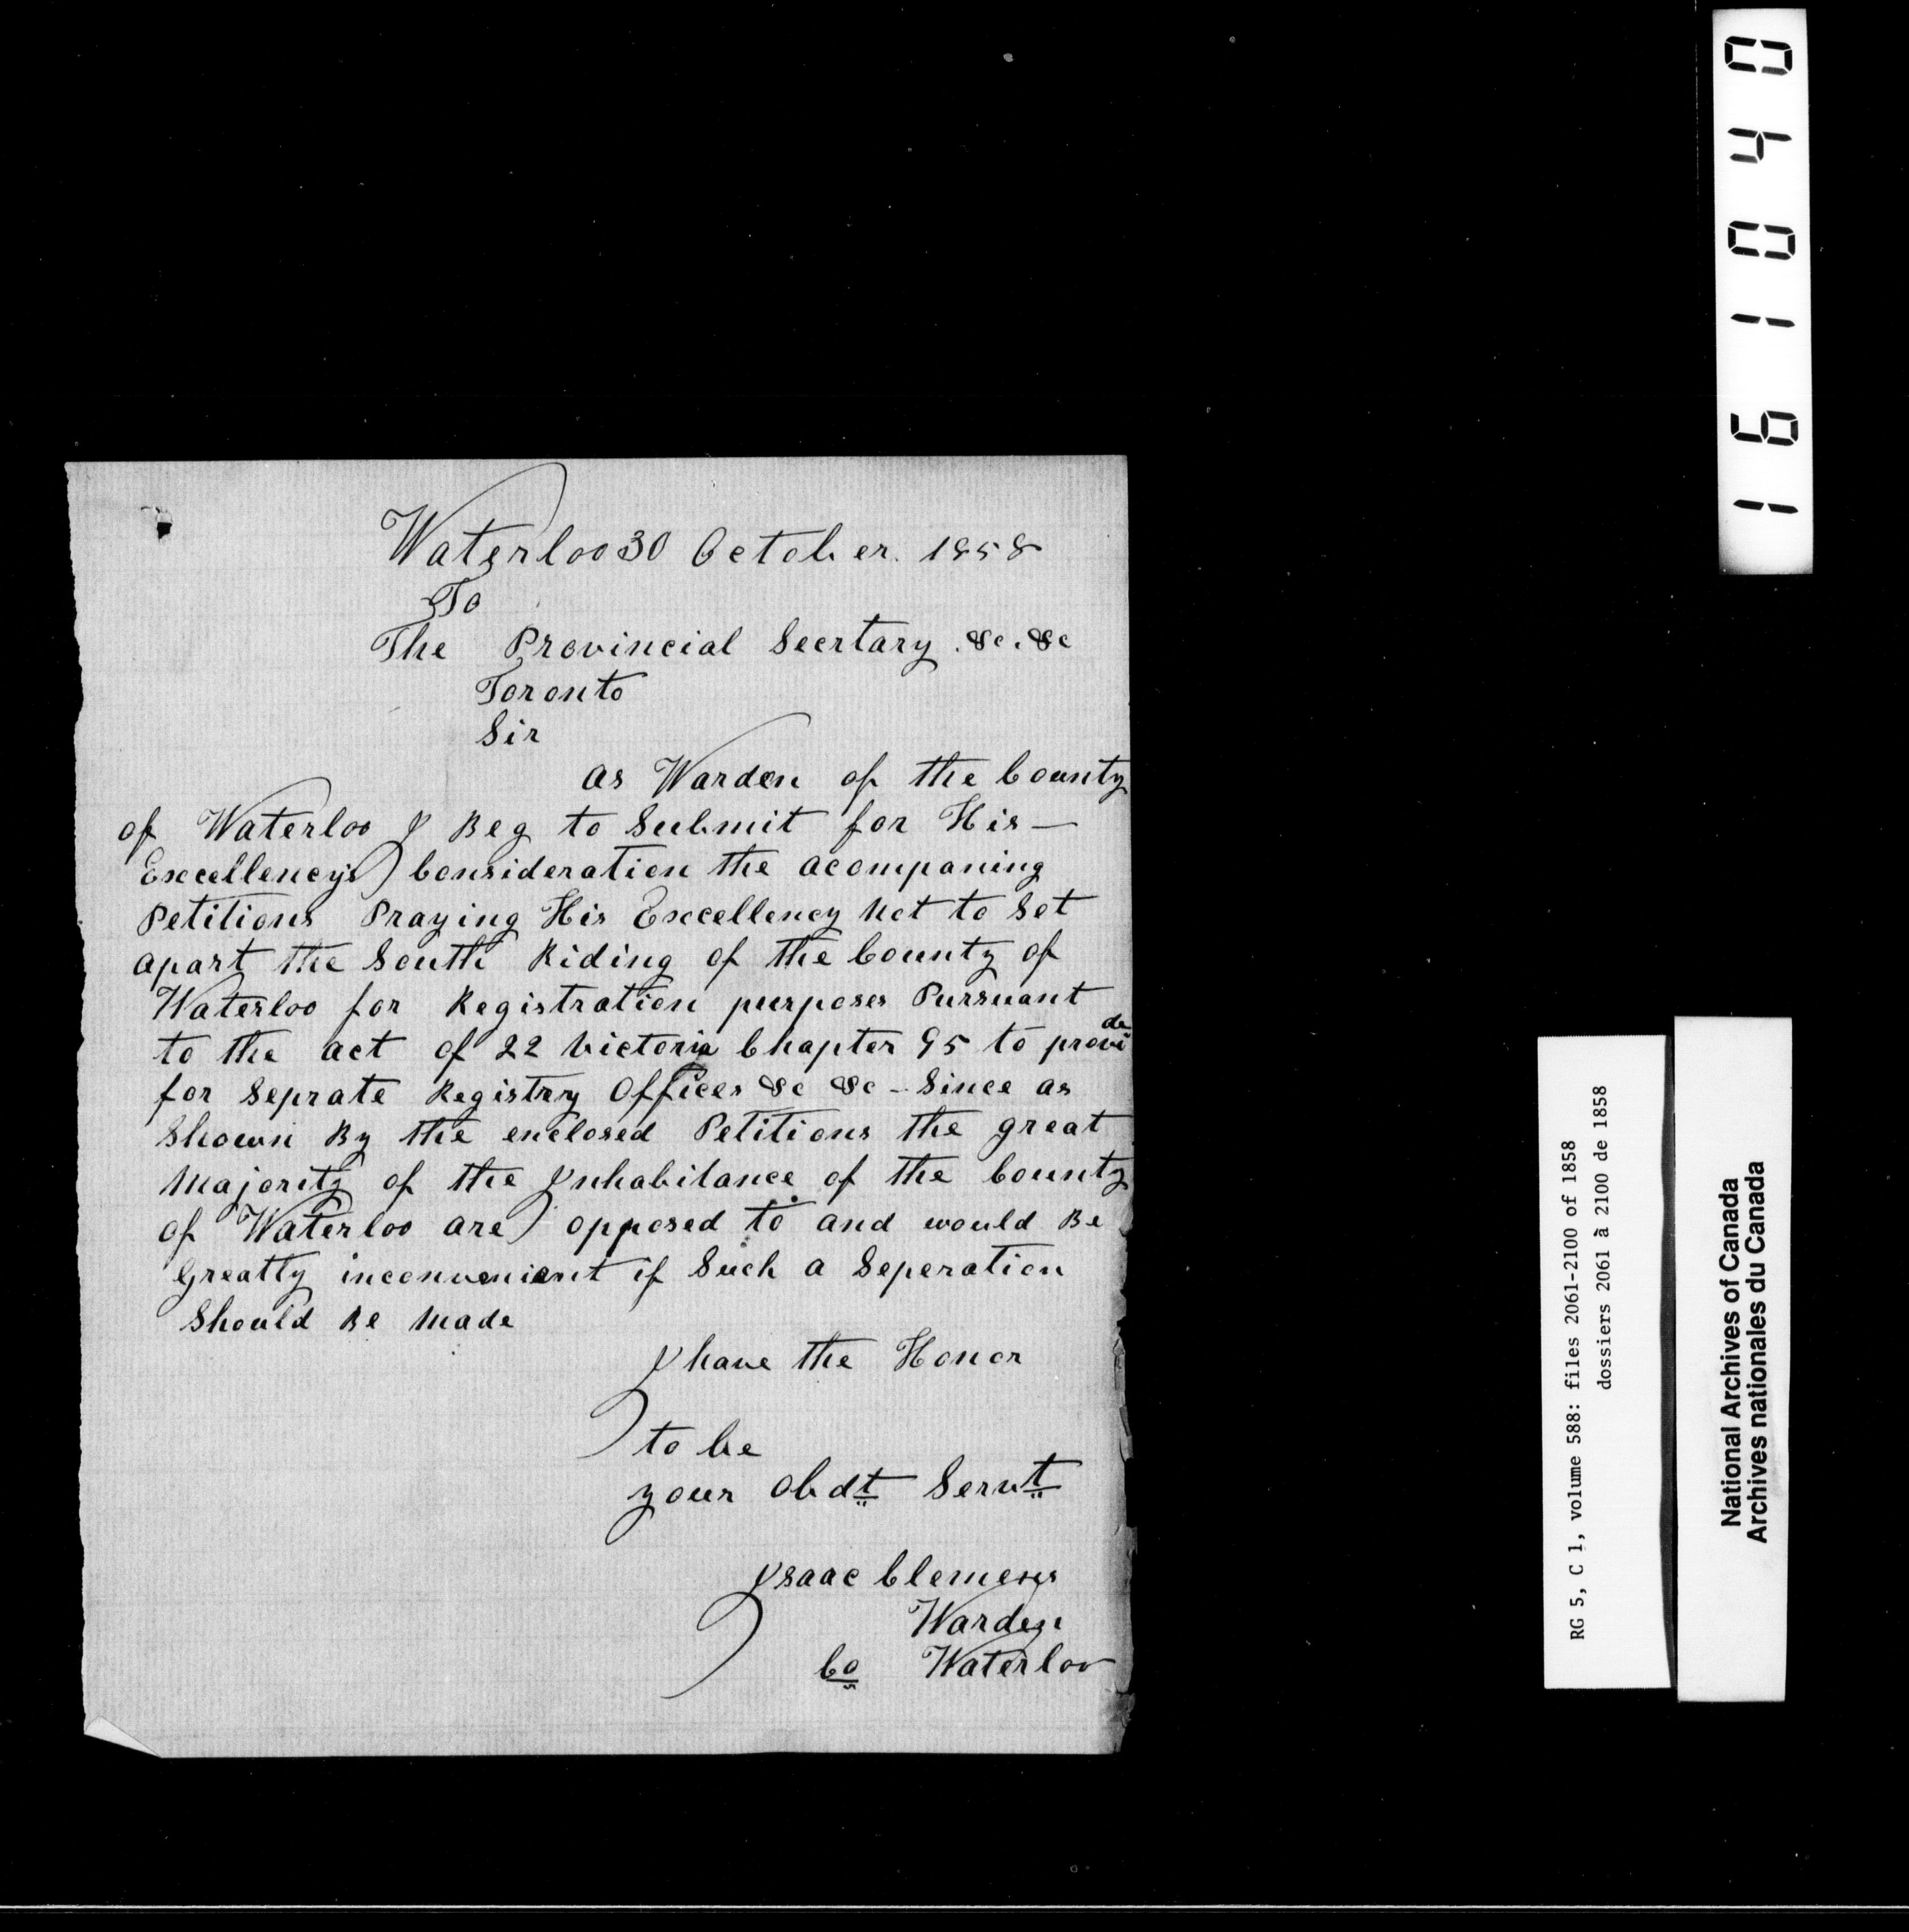 Waterloo 30 October. 1858
To
The Provincial Secrtary. &c. &c
Toronto
Sir
as Warden of the County
of Waterloo I Beg to Submit for His —
Excellency's Consideration the acompaning
Petitions Praying His Excellency Not to Set
apart the South Riding of the County of
Waterloo for Registration purposes Pursuant
to the act of 22 Victoria Chapter 95 to provide
for Seprate Registry Offices &c &c - Since as
Shown By the enclosed Petitions the great
Majority of the Inhabitance of the County
of Waterloo are opposed to and would Be
Greatly inconvenient if Such a Seperation
Should Be Made
I have the Honor
to be
your Obdt Servt
Isaac Clemens
Warden
Co Waterloo
161040
RG 5, C 1, volume 588: files 2061-2100 of 1858
dossiers 2061 à 2100 de 1858
National Archives of Canada
Archives nationales du Canada